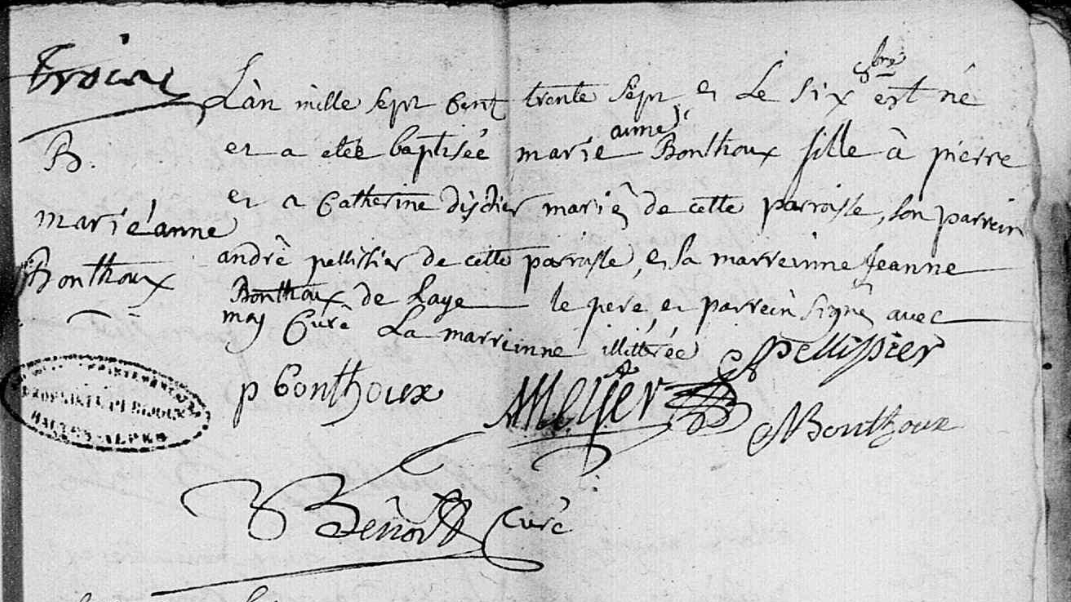 B.
marié anne
Bonthoux
Lan mille sept cent trente sept et Le six 8bre est né
et a eteé baptisée marie anne Bonthoux fille à pierre
et a Catherine disdier marié de cette parroisse, son parrein
andré pellissier de cette parroisse, et sa marreinne Jeanne
Bonthoux de Laye le pere et parrein signé avec
moy Curé La marreinne illittrée
pellissier
p bonthoux
Meyer
Bonthoux
Benoit Curé
HAUTES-ALPES